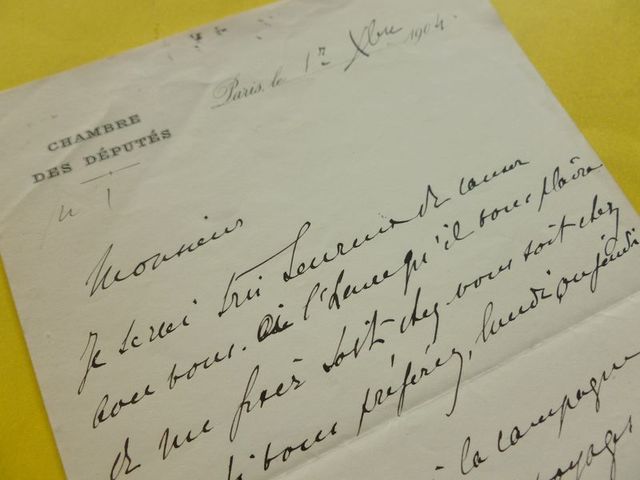 Paris, le 1er Xbre 1904.
CHAMBRE
DES DÉPUTÉS
Monsieur
Je serai très heureux de causer
avec vous. à l'heure qu'il vous plaira
de me fixer soit chez vous soit chez
si vous préférez, lundi ou jeudi
à la campagne
voyages